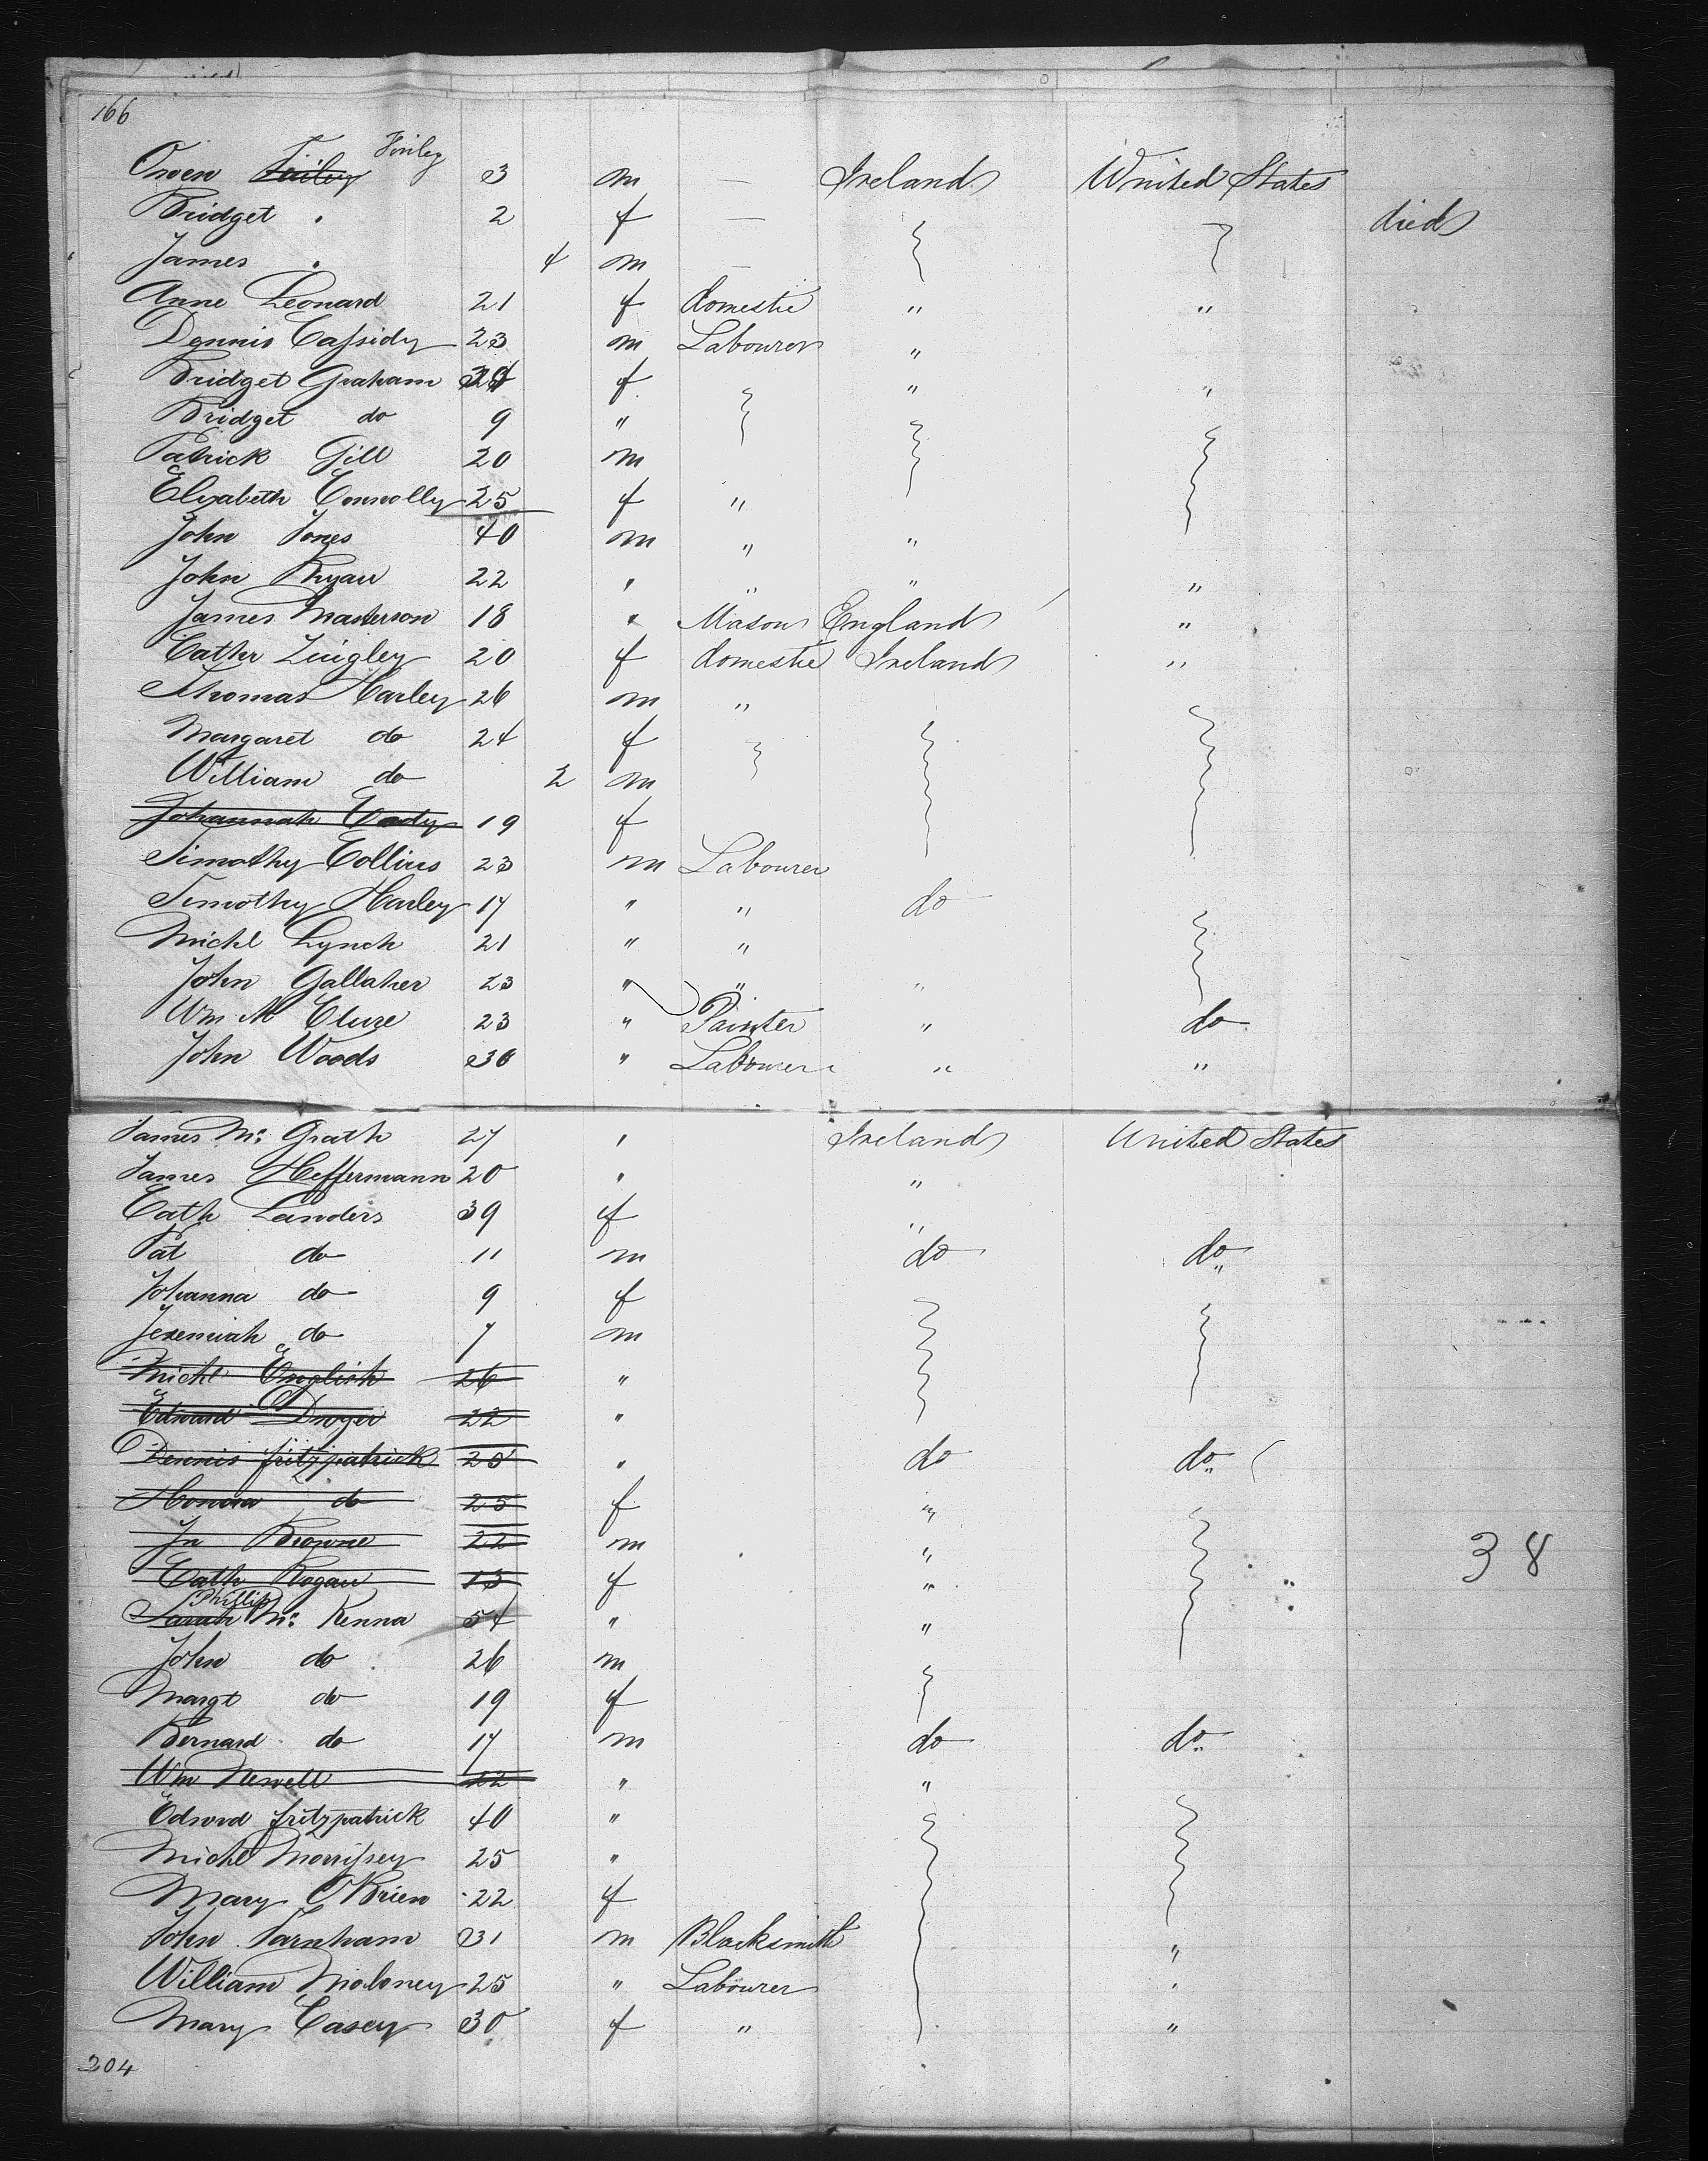 166
Owen Finley Finley 3 m — Ireland United States
Bridget " 2 f — died
James " 4 m —
Anne Leonard 21 f domestic " "
Dennis Cassidy 23 m Labourer "
Bridget Graham f " "
Bridget do 9 "
Patrick Gill 20 m
Elizabeth Connolly 25 f "
John Jones 40 m " "
John Ryan 22 " " " "
James Masterson 18 " Mason England "
Cathr Lingley 20 f domestic Ireland "
Thomas Harley 26 m "
Margaret do 24 f
William do 2 m
Johannah Cody 19 f
Timothy Collins 23 m Labourer
Timothy Harley 17 " " do
Michl Lynch 21 " "
John Gallaher 23 " " "
Wm Mc Clure 23 " Painter " do
John Woods 30 " Labourer " "
James Mc Grath 27 " Ireland United States
James Heffermann 20 " "
Cath Landers 39 f "
Pat do 11 m do do
Johanna do 9 f
Jeremiah do 7 m
Michl English 26 "
Edward Dwyer 22 "
Dennis fitzpatrick 25 " do do
Honora do 25 f "
Jn Browne 22 m "
Cath Hogan 13 f "
Phillip
Sarah Mc Kenna 54 " "
John do 26 m
Margt do 19 f
Bernard do 17 m do do
Wm Newell 22 " "
Edward fitzpatrick 40 "
Michl Morrissey 25 "
Mary O'Brien 22 f
John Farnham 31 m Blacksmith "
William Moloney 25 " Labourer "
Mary Casey 30 f " "
38
204